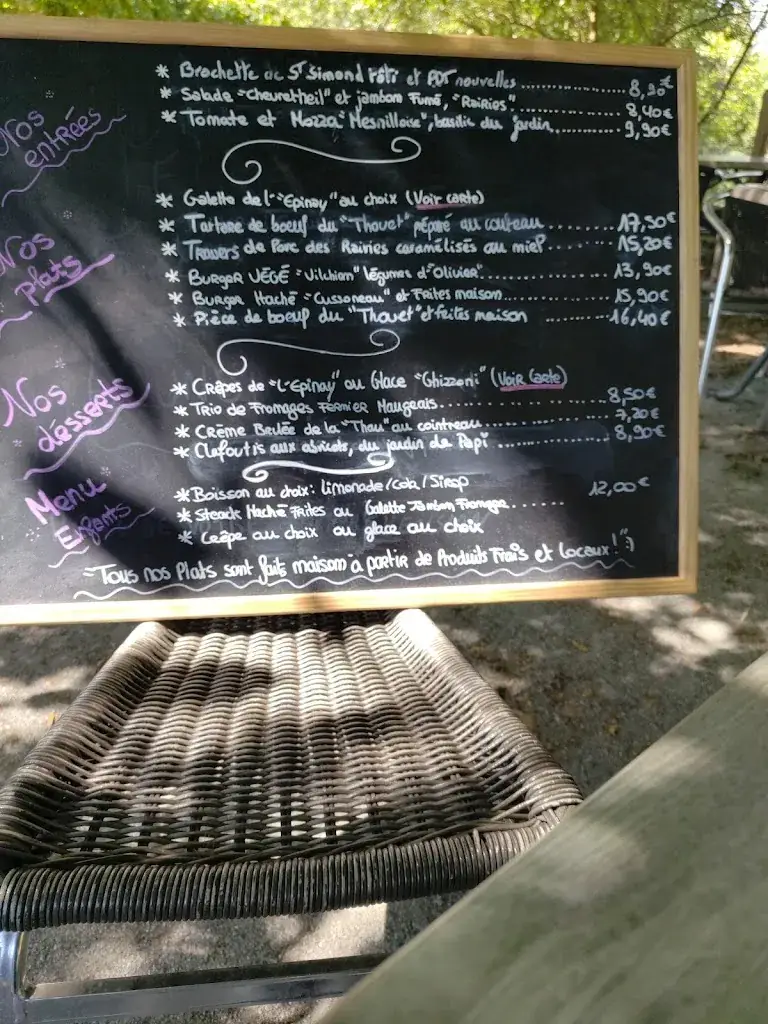 Nos entrées
* Brochette de St Simond rôti et PDT nouvelles ........ 8,90€
* Salade "Chevretheil" et jambon Fumé, "Rairies" ........ 8,40€
* Tomate et Mozza "Mesnilloise", basilic du jardin ........ 9,90€
Nos plats
* Galette de l'"Epinay" au choix (Voir carte)
* Tartare de boeuf du "Thouet" préparé au couteau ........ 17,50€
* Travers de Porc des Rairies caramélisés au miel ........ 15,20€
* BURGER VÉGÉ "Vilchian" légumes d'Olivier" ........ 13,90€
* BURGER Haché "Cussoneau" et Frites maison ........ 15,90€
* Pièce de boeuf du "Thouet" et frites maison ........ 16,40€
Nos desserts
* Crêpes de "L'Epinay" ou Glace "Ghizzoni" (Voir Carte)
* Trio de Fromages Fermier Maugeais ........ 8,50€
* Crème Brulée de la "Thau" au cointreau ........ 7,20€
* Clafoutis aux abricots, du jardin de Papi ........ 8,90€
Menu Enfants
* Boisson au choix: limonade/cola/Sirop 12,00€
* Steack Haché Frites ou Galette Jambon Fromage ......
* Crêpe au choix ou glace au choix
~Tous nos Plats sont faits maison à partir de Produits Frais et locaux! :)